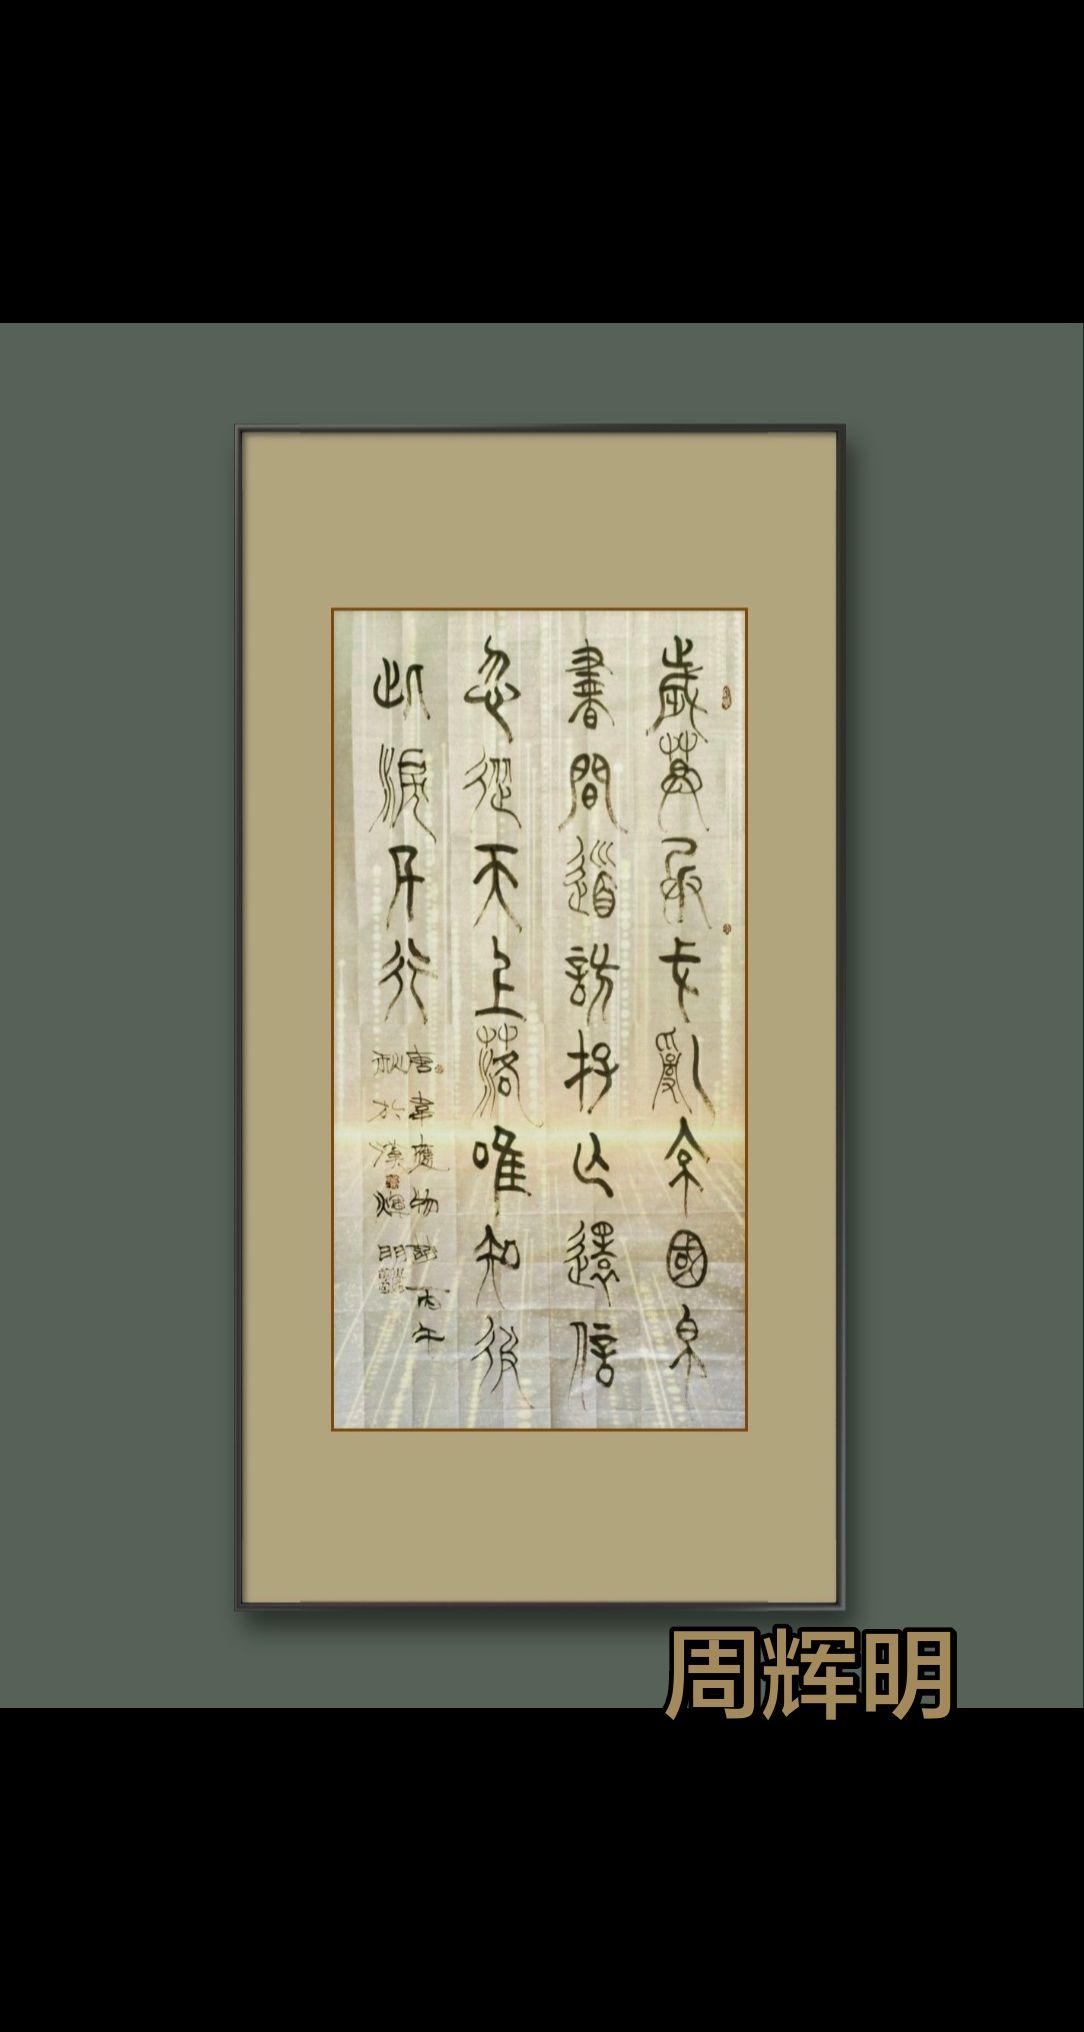 歲暮兵戈亂京國帛
書間道訪存亡還信
忽從天上落唯知彼
此淚千行
唐韋應物詩丙午
秋於漢輝明
周辉明